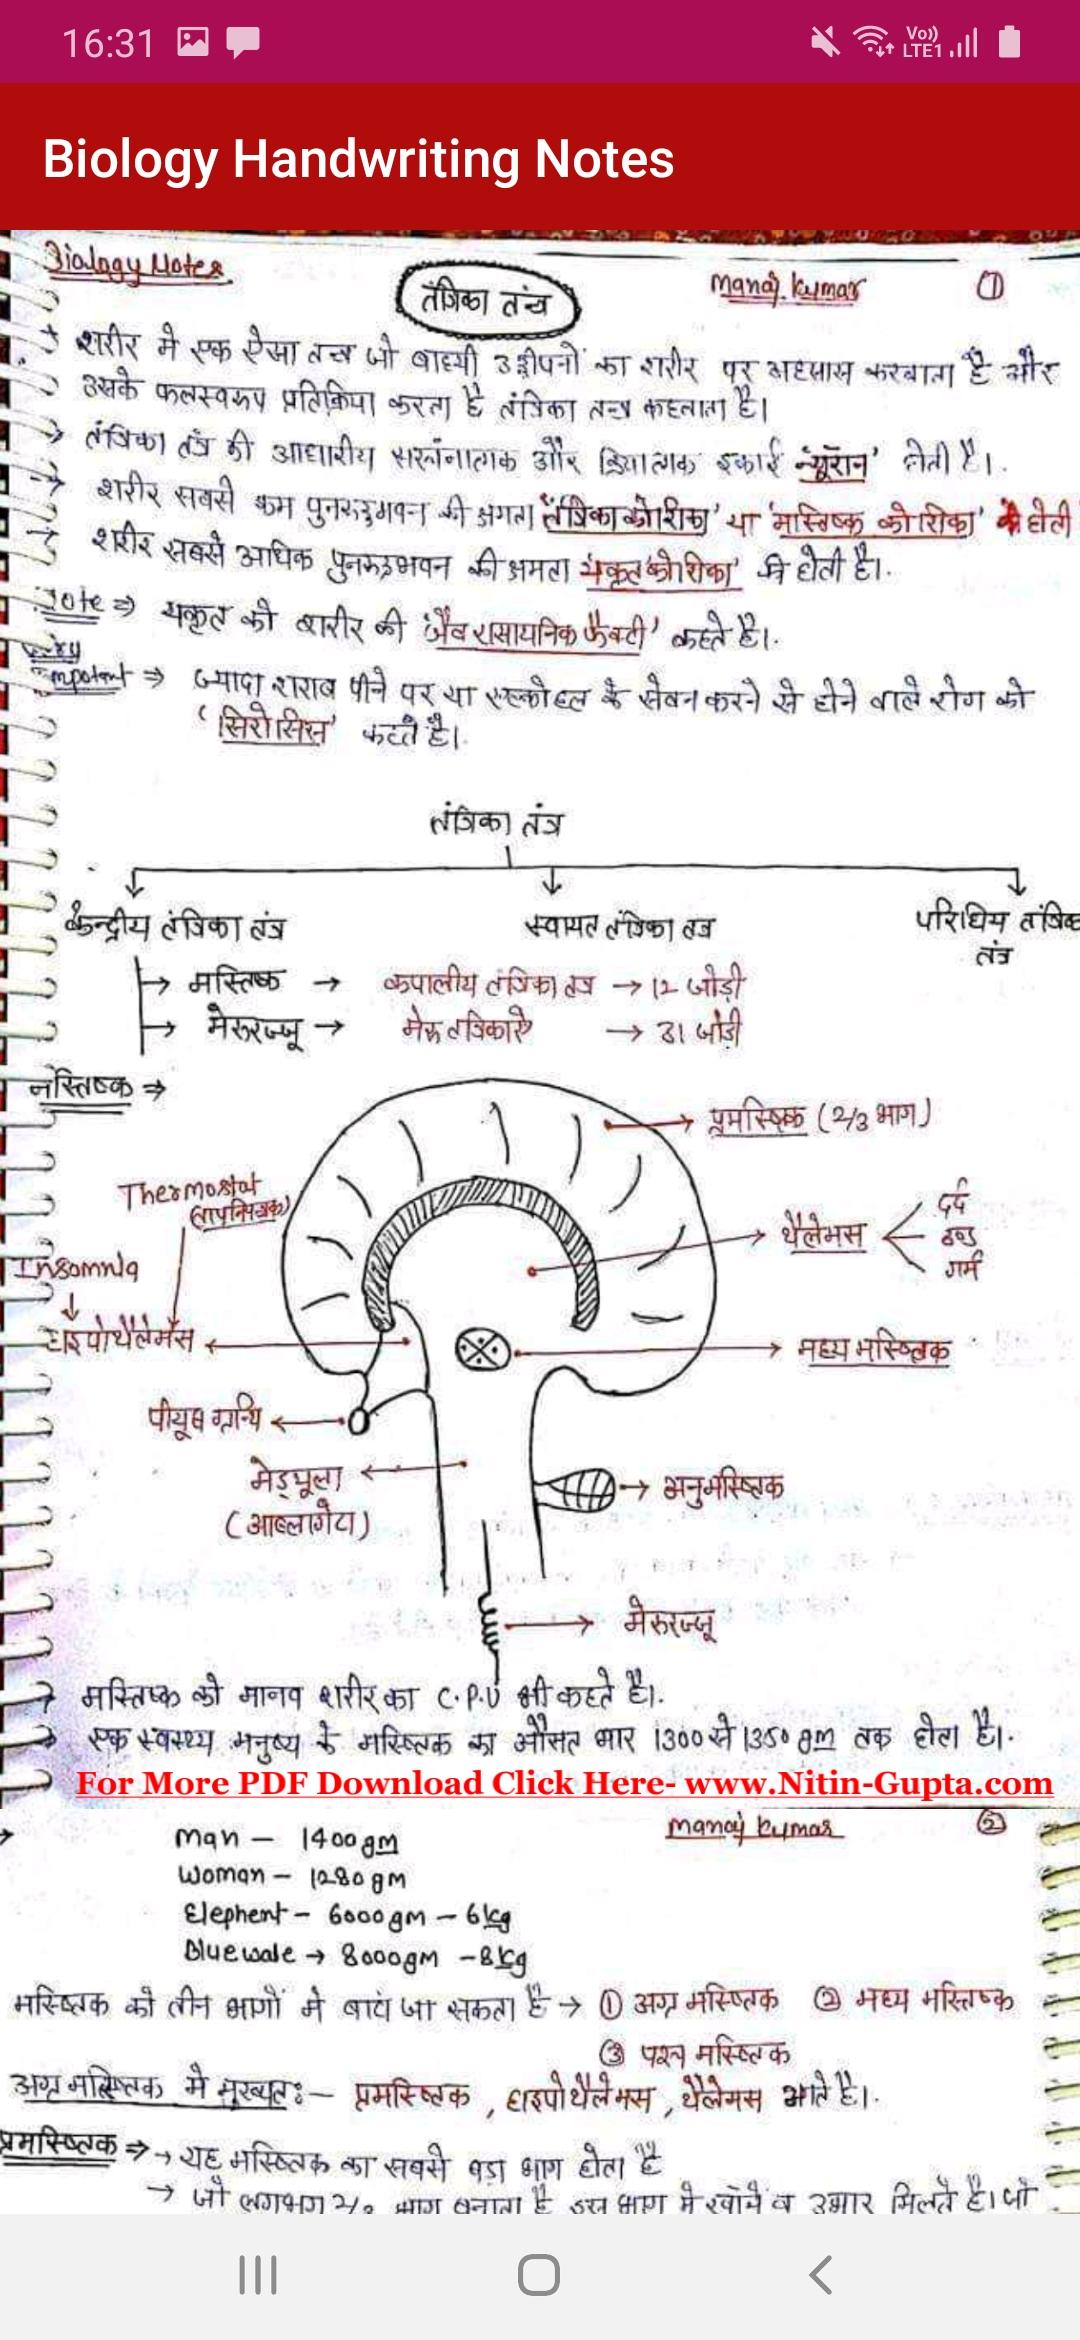 16:31
Vo)) LTE1
Biology Handwriting Notes
Biology Notes
तंत्रिका तन्त्र
Manoj Kumar
①
→ शरीर मे एक ऐसा तन्त्र जो बाध्यी उद्दीपनों का शरीर पर अहसास करवाता है और
उसके फलस्वरूप प्रतिक्रिया करता है तंत्रिका तन्त्र कहलाता है।
→ तंत्रिका तंत्र की आधारीय सरंचनात्मक और क्रियात्मक इकाई 'न्यूरॉन' होती है।
→ शरीर सबसे कम पुनरुद्भवन की क्षमता 'तंत्रिका कोशिका' या 'मस्तिष्क कोशिका' के होती
→ शरीर सबसे अधिक पुनरुद्भवन की क्षमता 'यकृत कोशिका' की होती है।
Note ⇒ यकृत को शरीर की 'जैव रासायनिक फैक्टी' कहते है।
Very
Impotant ⇒ ज्यादा शराब पीने पर या एल्कोहल के सेवन करने से होने वाले रोग को
'सिरोसिस' कहते है।
तंत्रिका तंत्र
केन्द्रीय तंत्रिका तंत्र
स्वायत तंत्रिका तंत्र
परिधिय तंत्रिक
तंत्र
→ मस्तिष्क → कपालीय तंत्रिका तंत्र → 12 जोड़ी
→ मेरुरज्जू → मेरु तंत्रिकाऐ → 31 जोड़ी
मस्तिष्क ⇒
प्रमस्तिष्क (2/3 भाग)
Thermostat
(तापनियंत्रक)
थैलेमस
दर्द
ठण्ड
गर्म
Insomnia
हाइपोथैलेमस
मध्य मस्तिष्क
पीयूष ग्रन्थि
मेड्यूला
(आब्लागेटा)
अनुमस्तिष्क
मेरुरज्जू
→ मस्तिष्क को मानव शरीर का C.P.U भी कहते है।
→ एक स्वस्थ्य मनुष्य के मस्तिष्क का औसत भार 1300 से 1350 gm तक होता है।
For More PDF Download Click Here- www.Nitin-Gupta.com
Manoj Kumar
②
→ Man – 1400 gm
Woman – 1280 gm
Elephent – 6000 gm – 6 kg
Blue wale → 8000 gm – 8 kg
मस्तिष्क को तीन भागों मे बांटा जा सकता है → ① अग्र मस्तिष्क ② मध्य मस्तिष्क
③ पश्च मस्तिष्क
अग्र मस्तिष्क मे मुख्यतः – प्रमस्तिष्क , हाइपोथैलेमस , थैलेमस आते है।
प्रमस्तिष्क ⇒ → यह मस्तिष्क का सबसे बड़ा भाग होता है
→ जो लगभग 2/3 भाग बनाता है इस भाग मे खाँचे व उभार मिलते है। जो